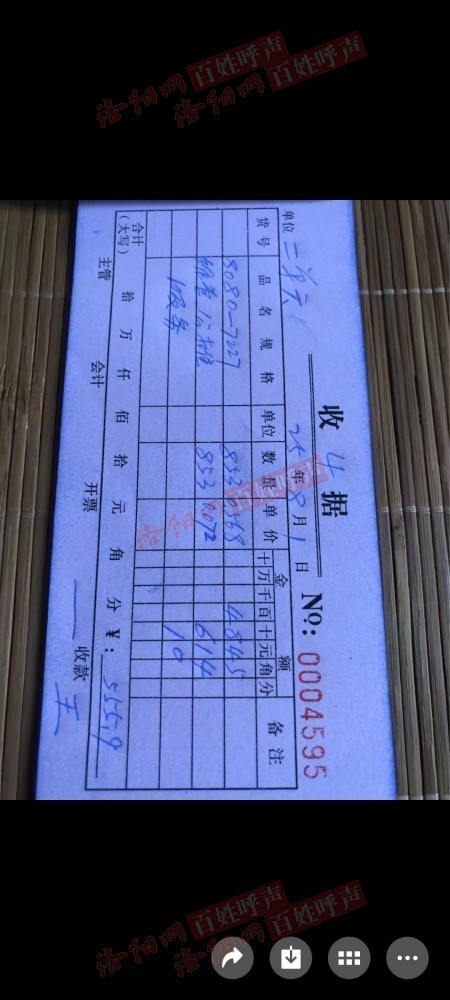 洛阳网 百姓呼声
洛阳网 百姓呼声
收 据
单位 二单六 25年8月1日 №: 0004595
货号 品名规格 单位 数量 单价 金额 十万千百十元角分 备注
8080-7227 853 0.568 4845
公摊 853 0.072 614
10
合计(大写) 拾 万 仟 佰 拾 元 角 分 ¥: 555.9
主管 会计 开票 收款 王
洛阳网 百姓呼声
洛阳网 百姓呼声
洛阳网 百姓呼声